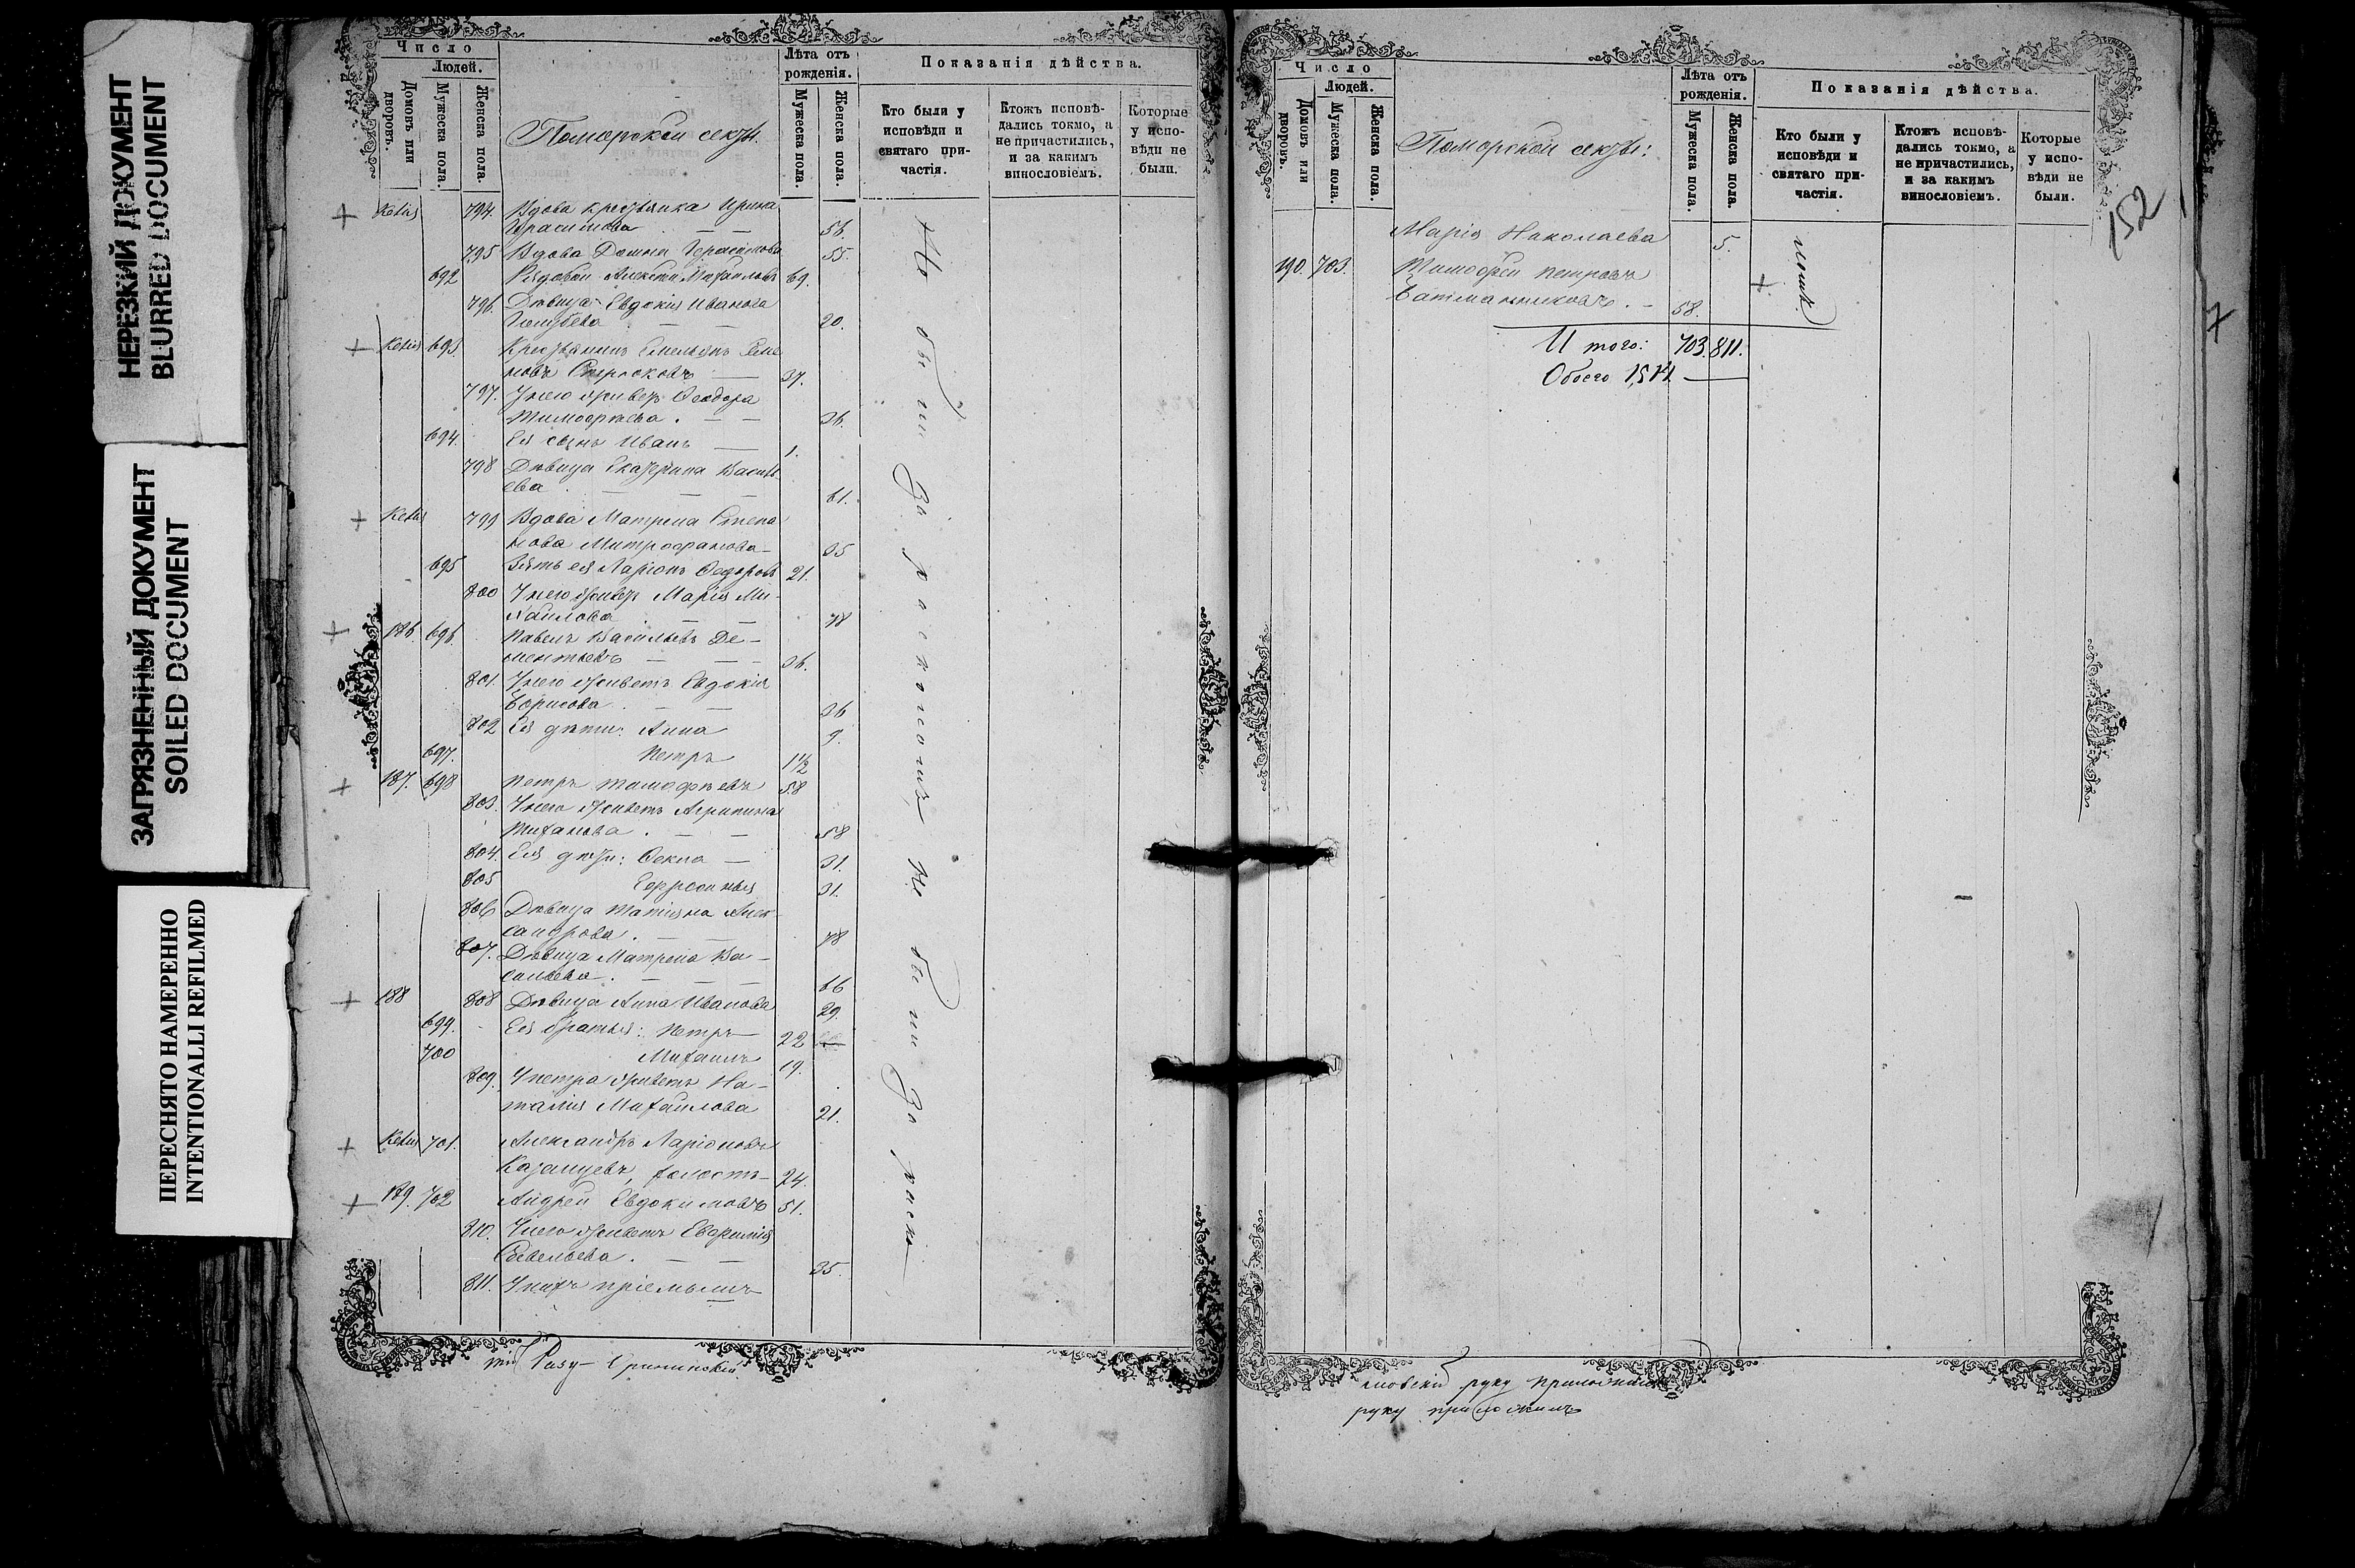 НЕРЕЗКИЙ ДОКУМЕНТ
BLURRED DOCUMENT
ЗАГРЯЗНЕННЫЙ ДОКУМЕНТ
SOILED DOCUMENT
ПЕРЕСНЯТО НАМЕРЕННО
INTENTIONALLI REFILMED
Число
Людей.
Домовъ или дворовъ.
Мужеска пола.
Женска пола.
Поморской секты.
Лѣта отъ рожденія.
Мужеска пола.
Женска пола.
Показанія дѣйства.
Кто были у исповѣди и святаго причастія.
Ктожъ исповѣдались токмо, а не причастились, и за какимъ винословіемъ.
Которые у исповѣди не были.
794. Вдова крестьянка Ирина
Герасимова 56.
795 Вдова Домна Герасимова 55.
692 Рядовой Алексѣй Михайловъ 69.
796. Дѣвица Евдокия Иванова
Голубева 20.
693 Крестьянинъ Емельянъ Семе
новъ 37.
797. У него живетъ Ѳеодора
Тимофеева . 36.
694. Ея сынъ Иванъ 1.
798 Дѣвица Екатерина Василь
ева . 61.
799 Вдова Матрена Степа
нова Митрофанова 35
695 Зять ея Ларіонъ Ѳедоровъ 21.
800 У него живетъ Марія Ми-
хайлова 78
186. 696. Павелъ Васильевъ Де-
ментьевъ 36.
801. У него живетъ Евдокія
Борисова . 36
802 Ея дѣти: Анна 9.
697. Петръ 1 1/2
187. 698 Петръ Тимофѣевъ 58
803. У него живетъ Агрипина
58
804. Ея дѣти: Ѳекла 31.
805 31.
806 Дѣвица Татіяна Алек-
сандрова . 78
807. Дѣвица Матрена Ва-
сильева . 66
188 808 Дѣвица Анна Иванова 29.
699. Ея братья: Петръ 22
700 Михаилъ 19.
809. У Петра живетъ На-
талія Михайлова 21.
701. Александръ Ларіоновъ
Казанцевъ, холостъ 24.
189. 702 Андрей Евдокимовъ 51.
810. У него живетъ Евфимія
Савельева . 35.
811. У нихъ пріемышъ
Не были за расколомъ Не были за раско
Число
Людей.
Домовъ или дворовъ.
Мужеска пола.
Женска пола.
Поморской секты:
Лѣта отъ рожденія.
Мужеска пола.
Женска пола.
Показанія дѣйства.
Кто были у исповѣди и святаго причастія.
Ктожъ исповѣдались токмо, а не причастились, и за какимъ винословіемъ.
Которые у исповѣди не были.
152
Марія Николаева 5.
190. 703. Тимофей Петровъ
58.
ломъ
И того: 703. 811.
Обоего 1514
руку приложилъ
руку приложилъ